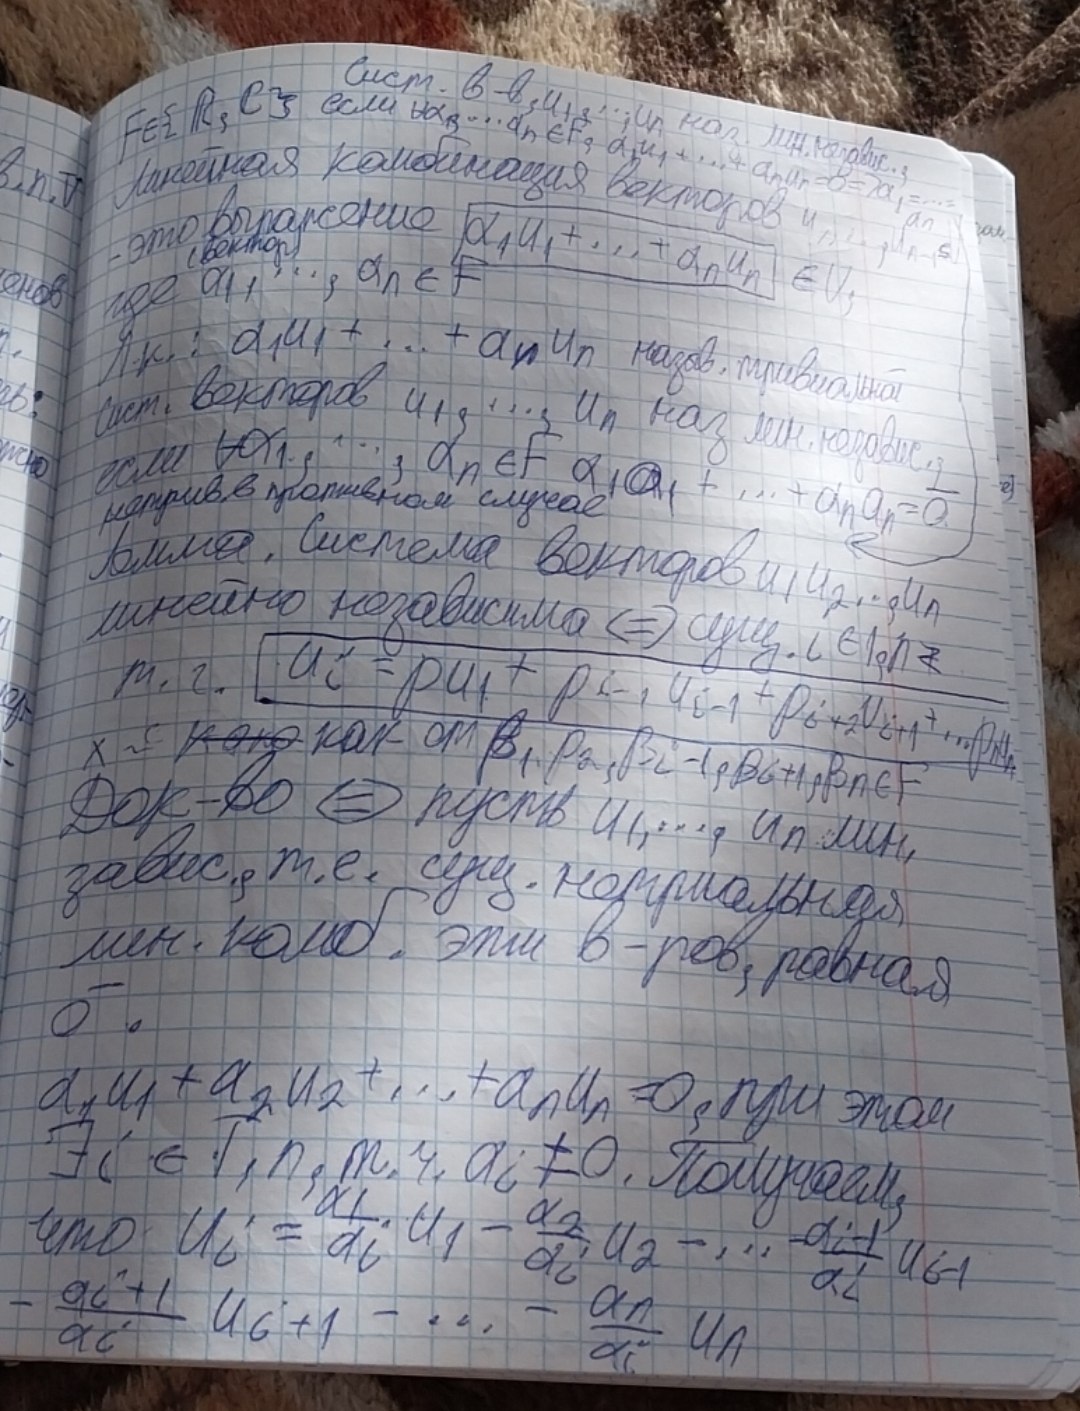 Сист. в-в, u₁, ..., uₙ наз. лин. независ.,
F∈{R, C} если ∀α, ... αₙ ∈ F, α₁u₁ + ... + αₙuₙ = 0 => α₁ = ... αₙ
Линейная комбинация векторов u₁, ..., uₙ
- это выражение α₁u₁ + ... + αₙuₙ ∈ V,
(вектор)
где α₁, ..., αₙ ∈ F
Л.к.: α₁u₁ + ... + αₙuₙ назов. тривиальной
Сист. векторов u₁, ..., uₙ наз лин. независ.,
если ∀α₁, ..., αₙ ∈ F α₁a₁ + ... + αₙaₙ = 0
нетрив. в противном случае
Лемма. Система векторов u₁ u₂ ..., uₙ
линейно независима <=> сущ. i ∈ 1, n
т. г. uᵢ = pu₁ + pᵢ₋₁ uᵢ₋₁ + pᵢ₊₂ uᵢ₊₁ + ... pₙuₙ
как от β₁, β₂, βᵢ₋₁, βᵢ₊₁, βₙ ∈ F
Док-во <=> пусть u₁, ..., uₙ лин.
завис., т.е. сущ. нетриальная
лин. комб. эти в-ров, равная
0̅.
α₁u₁ + α₂u₂ + ... + αₙuₙ = 0, при этом
∃i ∈ 1, n, т. ч. αᵢ ≠ 0. Получаем,
что uᵢ = α₁/αᵢ u₁ - α₂/αᵢ u₂ - ... - αᵢ₋₁/αᵢ uᵢ₋₁
- αᵢ₊₁/αᵢ uᵢ₊₁ - ... - αₙ/αᵢ uₙ